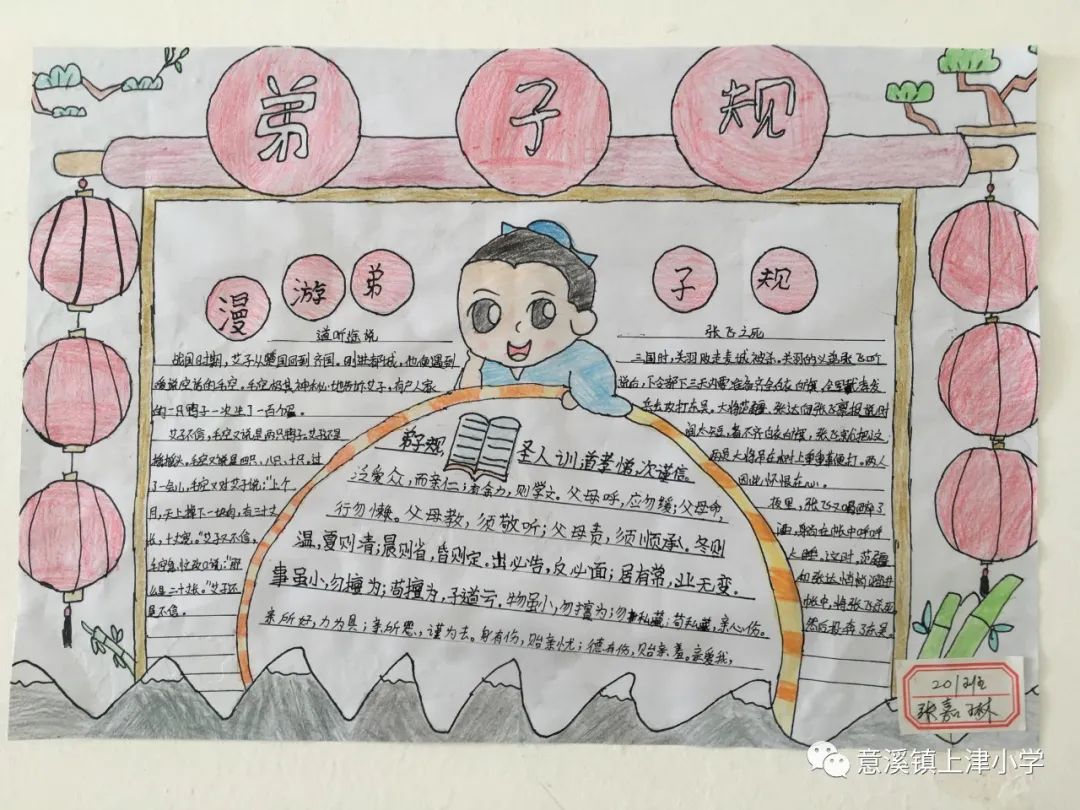 弟子规
漫游弟子规
道听途说
战国时期,艾子从楚国回到齐国。刚进都城,他便遇到
的一只鸭子一次生了一百个蛋。
艾子不信,毛空又说是两只鸭子。艾子不是
摇摇头,毛空又说是四只,八只,十只。过
了一会儿,毛空又对艾子说:“上个
月,天上掉下一块肉,有三十丈
长,十丈宽。”艾子又不信,
么是二十长。”艾子还
是不信。
弟子规
圣人训首孝悌,次谨信。
泛爱众,而亲仁;有余力,则学文。父母呼,应勿缓;父母命,
行勿懒。父母教,须敬听;父母责,须顺承。冬则
温,夏则清;晨则省,昏则定。出必告,反必面;居有常,业无变。
事虽小,勿擅为;苟擅为,子道亏。物虽小,勿私藏;苟私藏,亲心伤。
亲所好,力为具;亲所恶,谨为去。身有伤,贻亲忧;德有伤,贻亲羞。亲爱我,
张飞之死
三国时,关羽败走麦城被杀。关羽的义弟张飞
兵去攻打东吴。大将范疆、张达向张飞禀报说时
间太短,备不齐白衣白旗,张飞
两员大将吊在树上重重鞭打。两人
因此怀恨在心。
夜里,张飞又喝醉了
酒,躺在帐中呼呼
大睡,这时,范疆
和张达悄悄溜进
帐中,将张飞杀死
然后投奔了东吴。
201班
张嘉琳
意溪镇上津小学